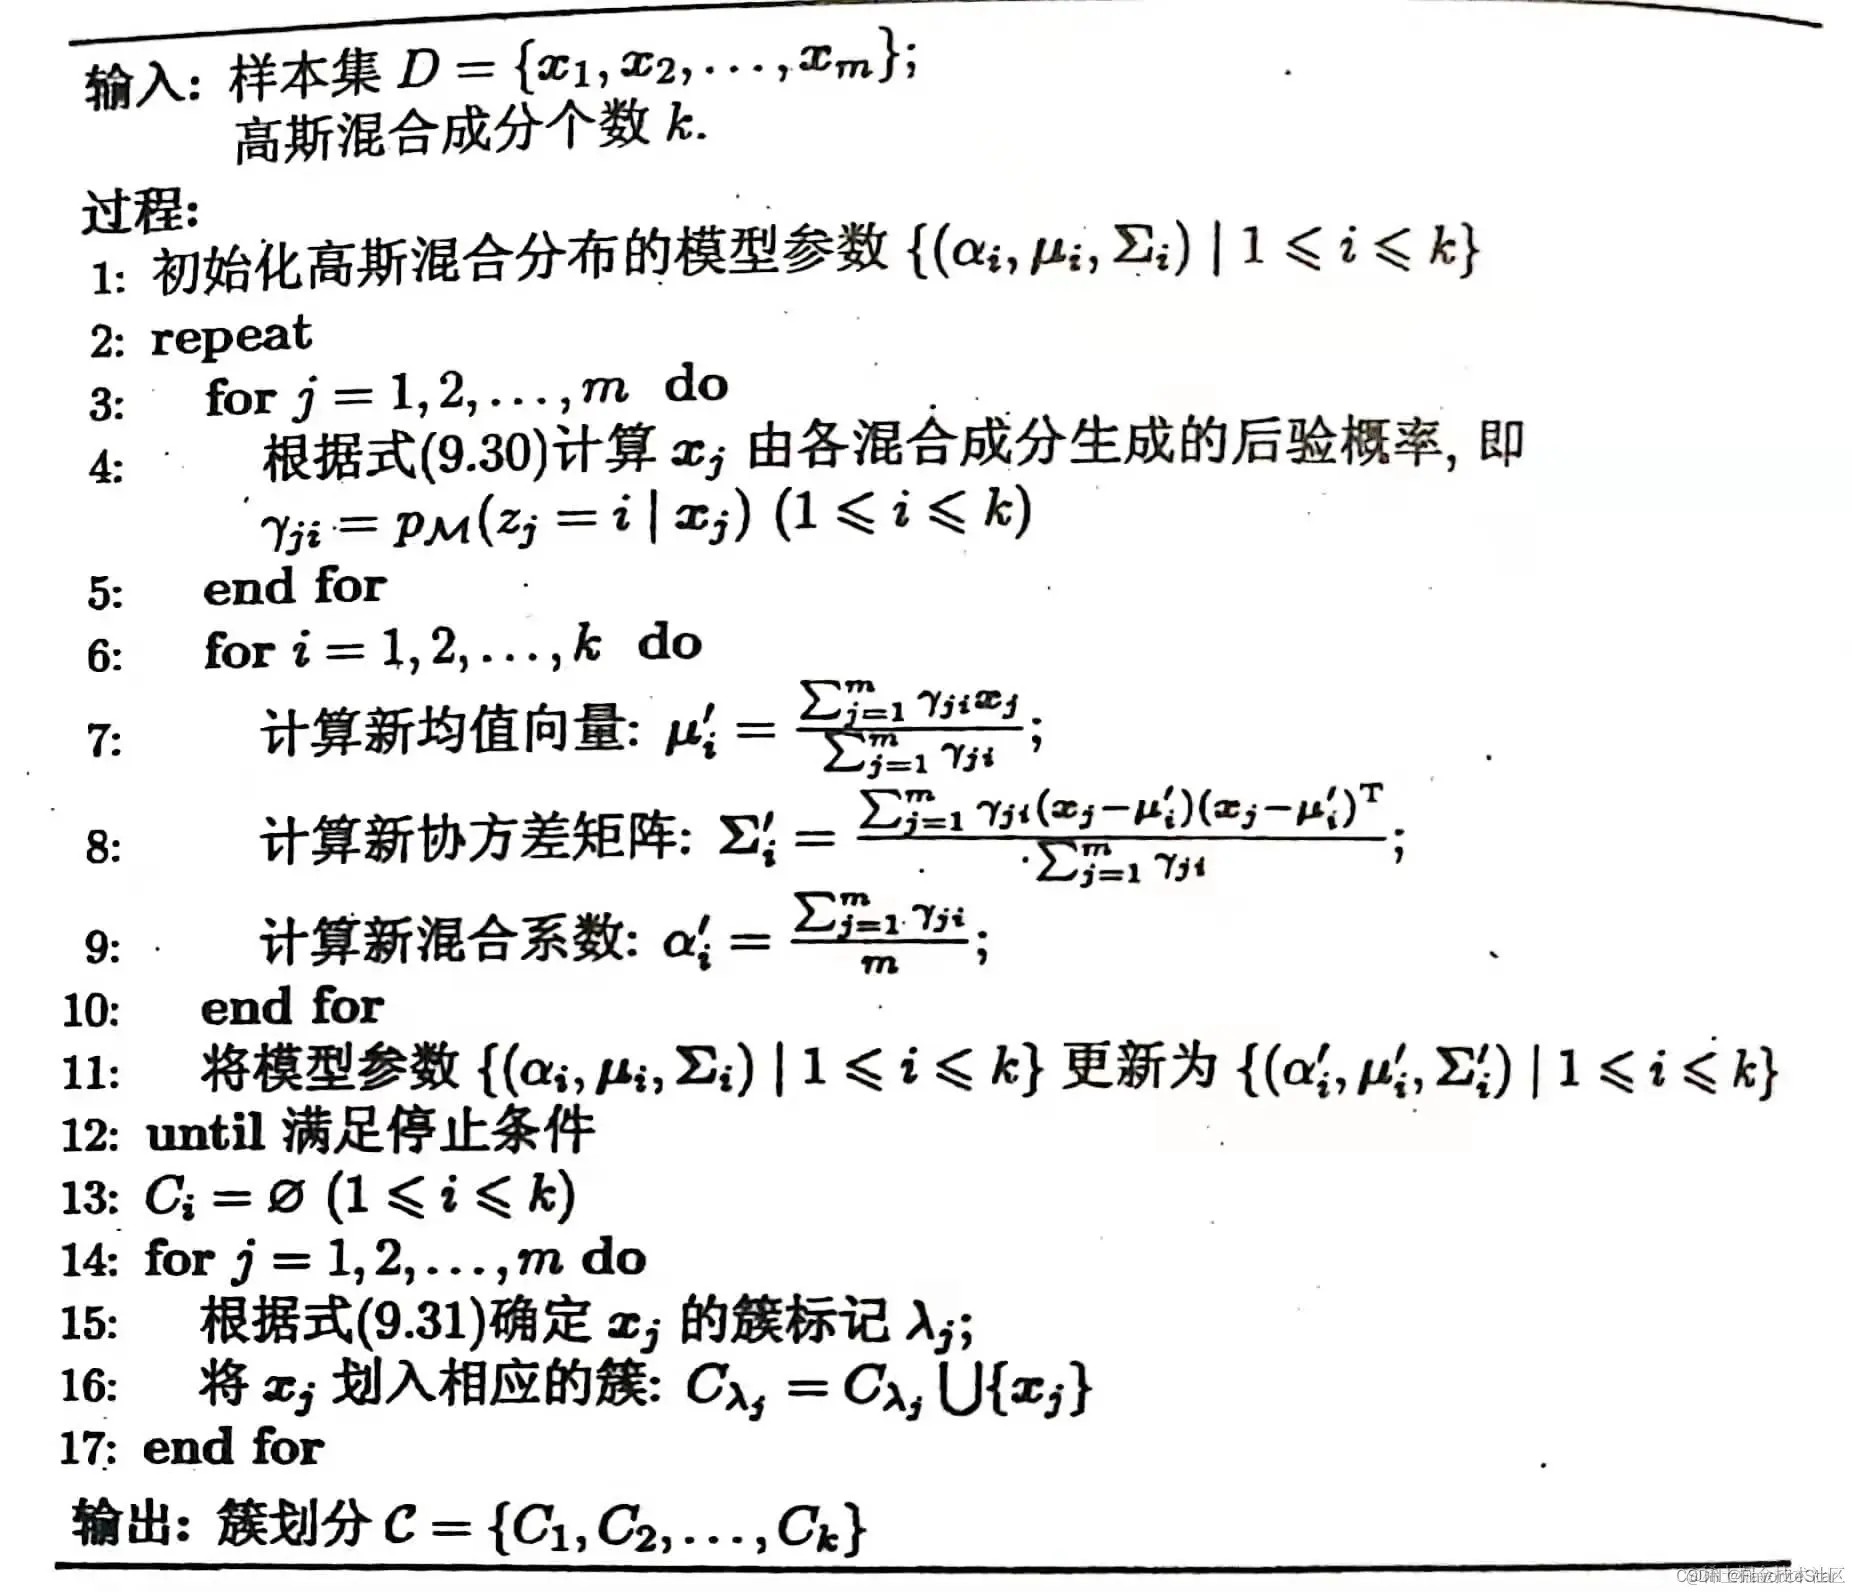 输入: 样本集 D = {x₁, x₂, ..., xₘ};
高斯混合成分个数 k.
过程:
1: 初始化高斯混合分布的模型参数 {(αᵢ, μᵢ, Σᵢ) | 1 ⩽ i ⩽ k}
2: repeat
3: for j = 1, 2, ..., m do
4: 根据式(9.30)计算 xⱼ 由各混合成分生成的后验概率, 即
γⱼᵢ = p_M(zⱼ = i | xⱼ) (1 ⩽ i ⩽ k)
5: end for
6: for i = 1, 2, ..., k do
7: 计算新均值向量: μ′ᵢ = \frac{∑_{j=1}^{m} γⱼᵢxⱼ}{∑_{j=1}^{m} γⱼᵢ};
8: 计算新协方差矩阵: Σ′ᵢ = \frac{∑_{j=1}^{m} γⱼᵢ(xⱼ−μ′ᵢ)(xⱼ−μ′ᵢ)ᵀ}{∑_{j=1}^{m} γⱼᵢ};
9: 计算新混合系数: α′ᵢ = \frac{∑_{j=1}^{m} γⱼᵢ}{m};
10: end for
11: 将模型参数 {(αᵢ, μᵢ, Σᵢ) | 1 ⩽ i ⩽ k} 更新为 {(α′ᵢ, μ′ᵢ, Σ′ᵢ) | 1 ⩽ i ⩽ k}
12: until 满足停止条件
13: Cᵢ = ∅ (1 ⩽ i ⩽ k)
14: for j = 1, 2, ..., m do
15: 根据式(9.31)确定 xⱼ 的簇标记 λⱼ;
16: 将 xⱼ 划入相应的簇: C_{λⱼ} = C_{λⱼ} ⋃{xⱼ}
17: end for
输出: 簇划分 C = {C₁, C₂, ..., Cₖ}